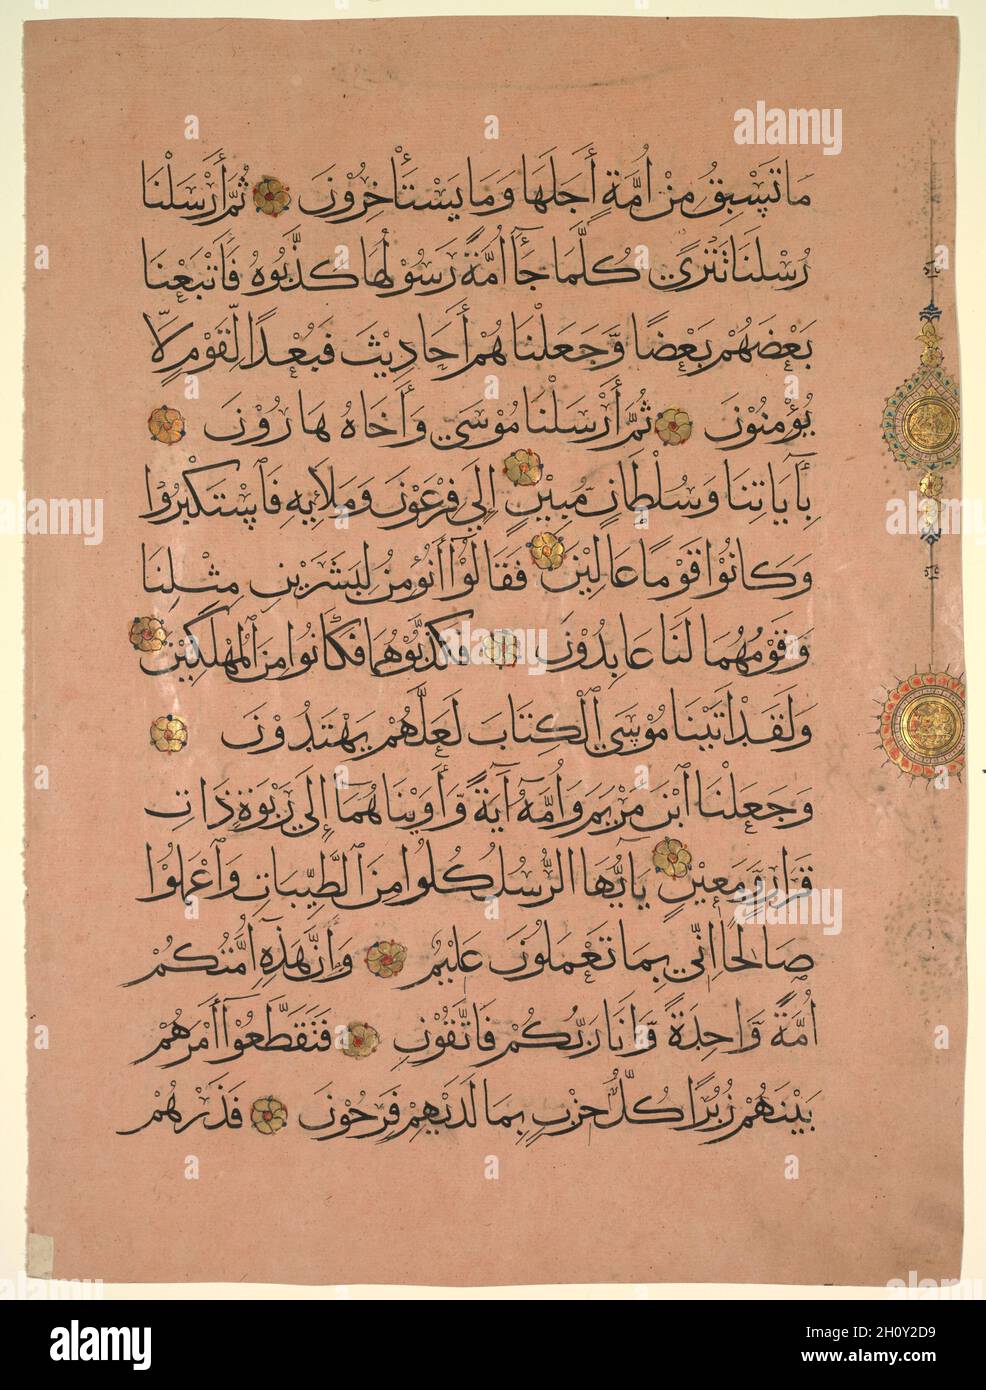 مَا تَسْبِقُ مِنْ أُمَّةٍ أَجَلَهَا وَمَا يَسْتَأْخِرُونَ ثُمَّ أَرْسَلْنَا
رُسُلَنَا تَتْرَى كُلَّمَا جَآءَ أُمَّةً رَسُولُهَا كَذَّبُوهُ فَأَتْبَعْنَا
بَعْضَهُمْ بَعْضًا وَّجَعَلْنَاهُمْ أَحَادِيثَ فَبُعْدًا لِّقَوْمٍ لَّا
يُؤْمِنُونَ ثُمَّ أَرْسَلْنَا مُوسَى وَأَخَاهُ هَارُونَ
بِآيَاتِنَا وَسُلْطَانٍ مُبِينٍ إِلَى فِرْعَوْنَ وَمَلَائِهِ فَاسْتَكْبَرُوا
وَكَانُوا قَوْمًا عَالِينَ فَقَالُوا أَنُؤْمِنُ لِبَشَرَيْنِ مِثْلِنَا
وَقَوْمُهُمَا لَنَا عَابِدُونَ فَكَذَّبُوهُمَا فَكَانُوا مِنَ الْمُهْلَكِينَ
وَلَقَدْ آتَيْنَا مُوسَى الْكِتَابَ لَعَلَّهُمْ يَهْتَدُونَ
وَجَعَلْنَا ابْنَ مَرْيَمَ وَأُمَّهُ آيَةً وَّآوَيْنَاهُمَا إِلَى رَبْوَةٍ ذَاتِ
قَرَارٍ وَّمَعِينٍ يَا أَيُّهَا الرُّسُلُ كُلُوا مِنَ الطَّيِّبَاتِ وَاعْمَلُوا
صَالِحًا إِنِّي بِمَا تَعْمَلُونَ عَلِيمٌ وَإِنَّ هَذِهِ أُمَّتُكُمْ
أُمَّةً وَّاحِدَةً وَّأَنَا رَبُّكُمْ فَاتَّقُونِ فَتَقَطَّعُوا أَمْرَهُمْ
بَيْنَهُمْ زُبُرًا كُلُّ حِزْبٍ بِمَا لَدَيْهِمْ فَرِحُونَ فَذَرْهُمْ
alamy
Image ID: 2H0Y2D9
www.alamy.com